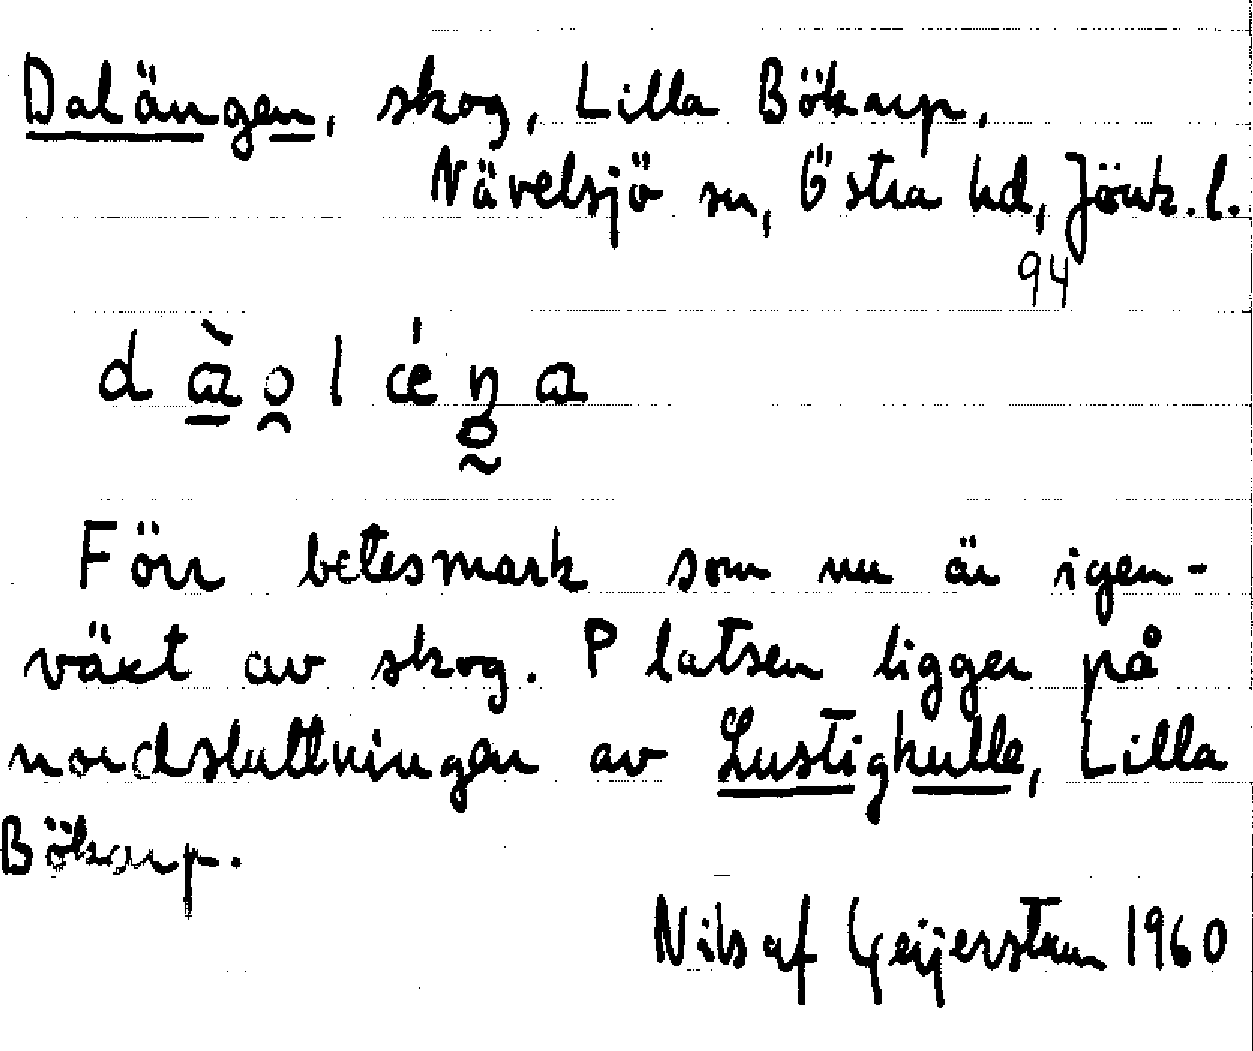 Dalängen, skog, Lilla Bökarp,
Nävelsjö sn, Östra hd, Jönk. l.
94
Förr betesmark som nu är igen-
växt av skog. Platsen ligger på
nordsluttningen av Lustigkulle, Lilla
Bökarp.
Nils af Geijerstam 1960